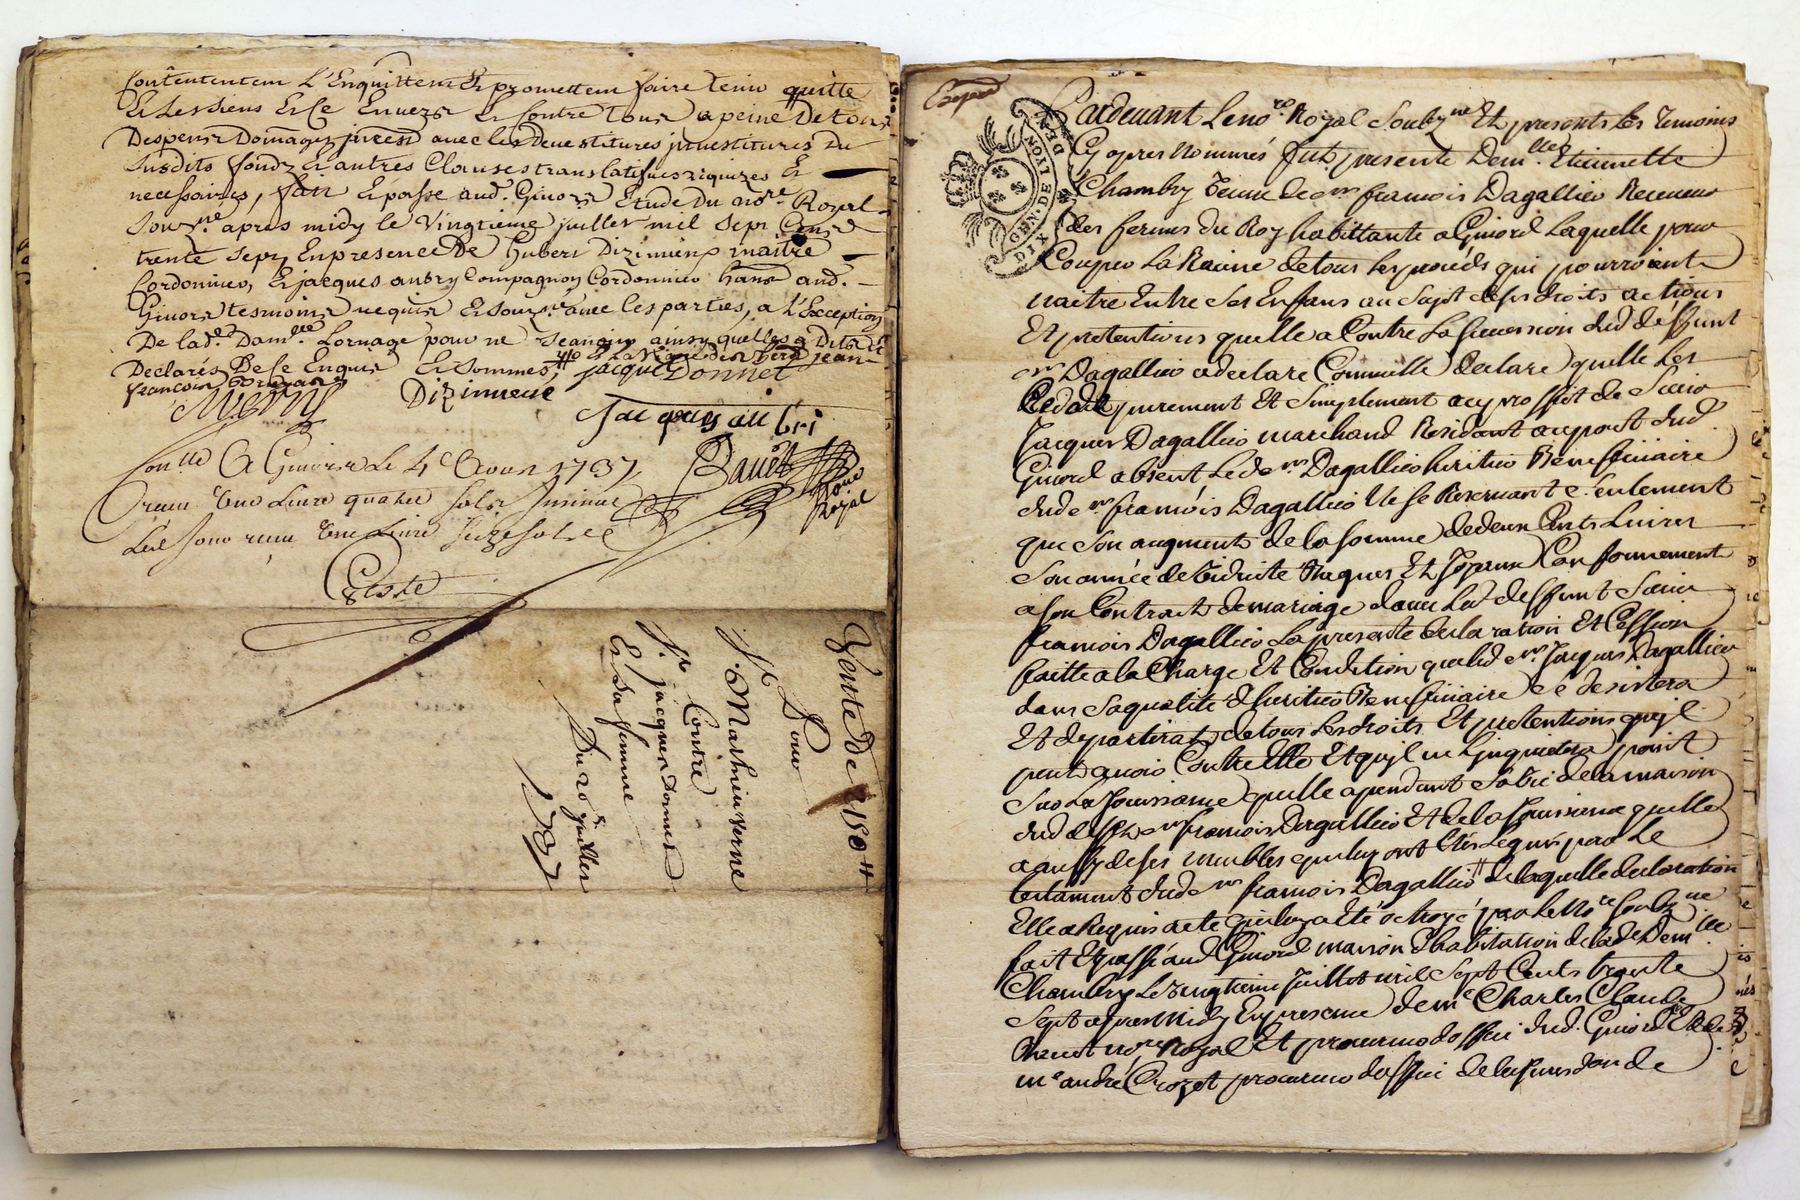 Contentement L'Enquittent Et promettent faire tenir quitte
Et les siens Et Ce Envers Et Contre tous a peine De tous
Despens Domages avec les Devestitures investitures Du
susdits fonds Et autres Clauses translatifves requizes Et
necessaires, fait Et passé aud. Givors Etude Du no.re Royal
sous.né apres midy le vingtieme juillet mil sept Cens
trente sept En presence De Hubert Dizimieux maitre
Cordonnier, Et jacques aubry Compagnon Cordonnier hans aud.
Givors tesmoins requis Et sous.és avec les parties, a L'Exception
De lad.e Dam.lle Lornage pour ne sçavoir ainsy quelles a Dit Et
Declarés De Ce Enquis Et sommés jacque Donnet jean
francois
Dizimieux
Jacques aubri
Con.llé A Givors Le 4e Aoust 1737
Receu une Livre quatre sols Insinué
Led jour receu une Livre seize sols
Coste
Bauet
no.re
Royal
Vente De 150 ₶
Pour
Sr. Mathieu verne
Contre
Sr. jacques Donnet
Et Sa femme
Du 20e juillet
1737
GEN. DE LYON
DIX DEN
Pardevant Le no.re Royal Soubz.né Et presents les Temoins
Cy apres Nommés fut presente Dem.lle Etiennette
Chambry Veuve de sr. francois Dagallier Receveur
des fermes du Roy habittante a Givord Laquelle pour
Couper La Racine de tous les procéds qui pourroient
naitre Entre Ses Enfans au Sujet de ses droits actions
Et pretentions quelle a Contre La succession dud deffunt
sr. Dagallier a declare Comme elle declare quelle Les
Cede purement Et Simplement au proffit de Sieur
Jacques Dagallier marchand Residant au port dud.
Givord absent Led sr. Dagallier heritier Beneficiaire
dud sr. francois Dagallier Ne se Reservant seulement
que Son augment de la Somme de deux Cents Livres
Son année de Viduité Bagues Et Joyaux Conformement
a son Contract de mariage avec Led deffunt Sieur
francois Dagallier La presente declaration Et Cession
faitte a la Charge Et Condition que led sr. Jacques Dagallier
dans Sa qualité d'heritier Beneficiaire se desistera
Et departira de tous Les droits Et pretentions quil
peut avoir Contre elle Et quil ne Linquietera point
Sur La Jouissance quelle a pendant Sa vie de la maison
dud deft. sr. francois Dagallier Et de la Jouissance quelle
a aussy de ses meubles qui luy ont Etés Legués par Le
testament dud sr. francois Dagallier de laquelle declaration
Elle a Requis acte qui luy a Eté octroyé par Le No.re soubz.né
fait Et passé aud Givord maison d'habitation de lad.e Dem.lle
Chambry Le vingtieme Juillet mil Sept Cents trente
Sept apres Midy En presence de me. Charles Claude
no.re Royal Et procureur d'office dud. Givord Et de
me. andré Crozet procureur d'office de la Jurisdon. de